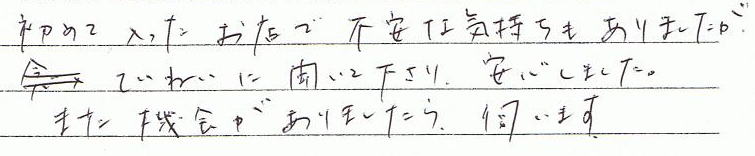 初めて入ったお店で不安な気持ちもありましたが、
ていねいに聞いて下さり、安心しました。
また機会がありましたら、伺います